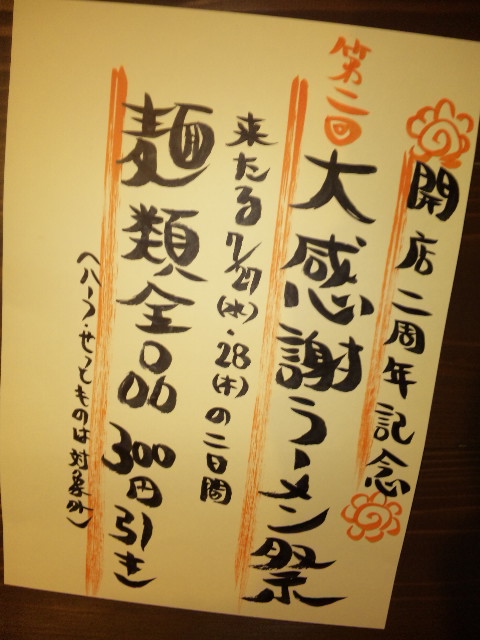 開店二周年記念
第二回
大感謝ラーメン祭
来たる7/27(水)・28(木)の二日間
麺類全品300円引き
(ハーフ・せっとものは対象外)